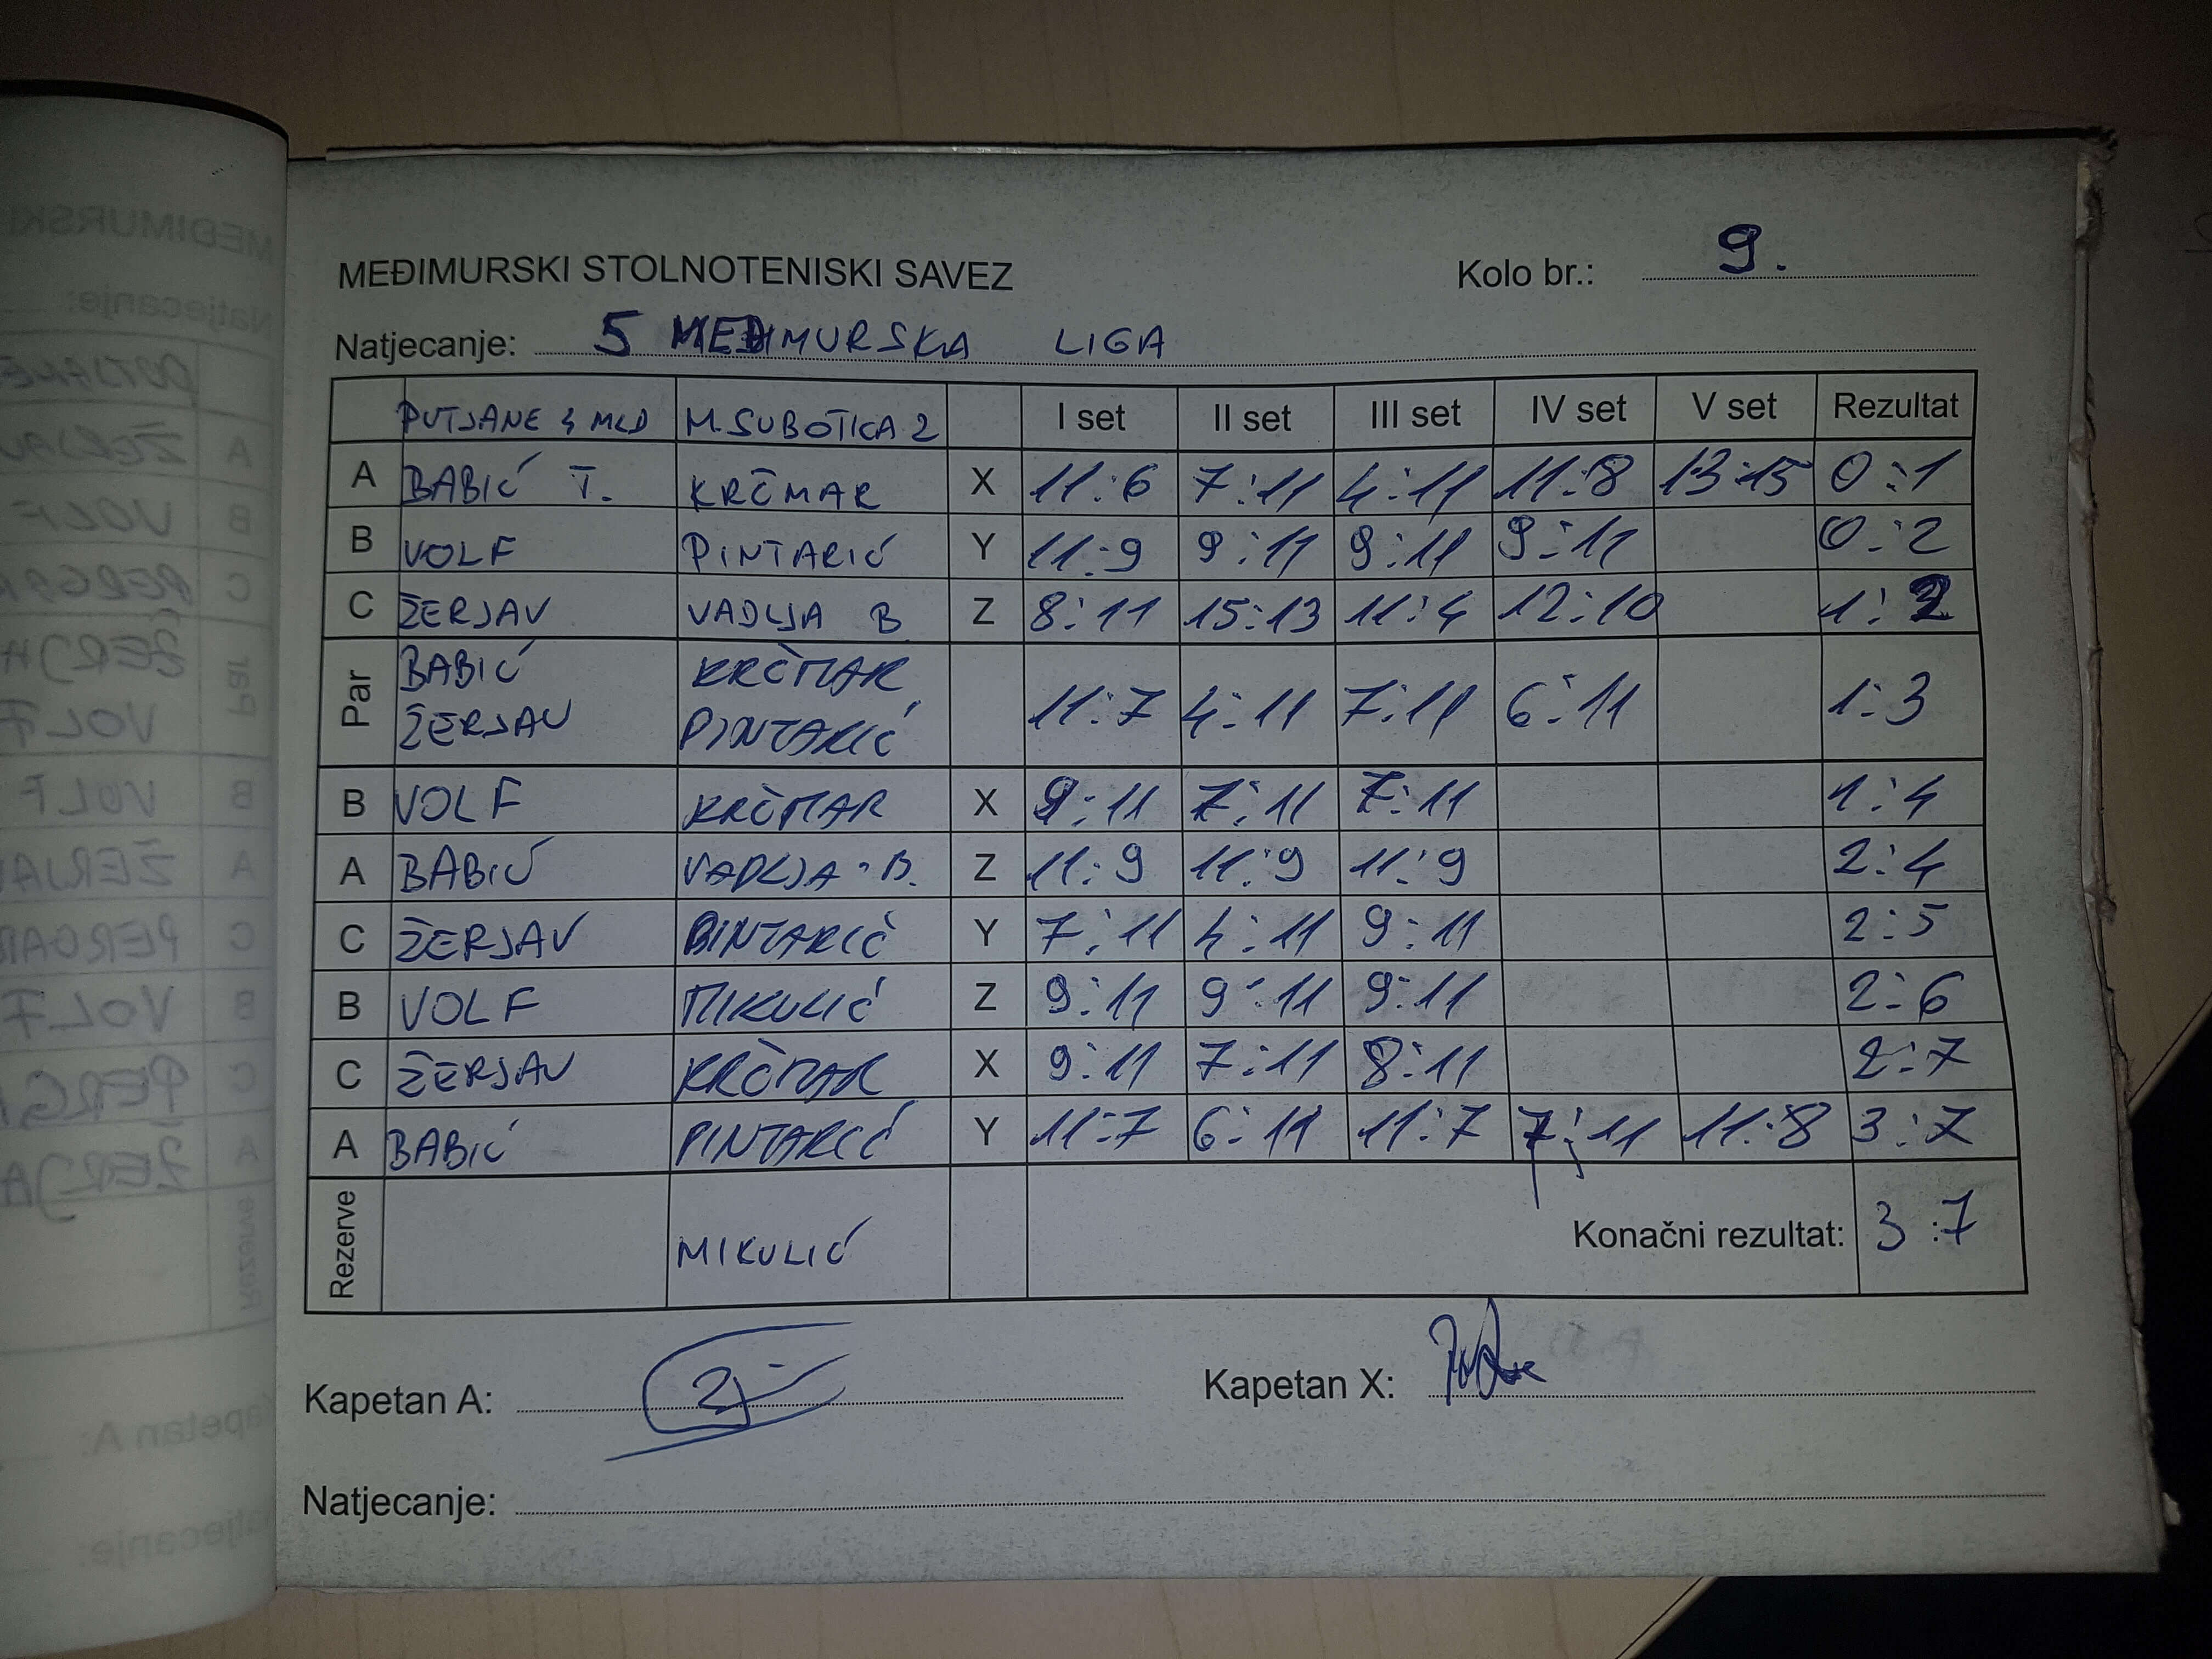 MEĐIMURSKI STOLNOTENISKI SAVEZ Kolo br.: 9.
Natjecanje: 5 MEĐIMURSKA LIGA
PUTJANE 4 MLD M.SUBOTICA 2 I set II set III set IV set V set Rezultat
A BABIĆ T. KRČMAR X 11:6 7:11 4:11 11:8 13:15 0:1
B VOLF PINTARIĆ Y 11:9 9:11 9:11 9:11 0:2
C ŽERJAV VADLJA B Z 8:11 15:13 11:4 12:10 1:2
Par BABIĆ ŽERJAV KRČMAR PINTARIĆ 11:7 4:11 7:11 6:11 1:3
B VOLF KRČMAR X 9:11 7:11 7:11 1:4
A BABIĆ VADLJA B. Z 11:9 11:9 11:9 2:4
C ŽERJAV PINTARIĆ Y 7:11 4:11 9:11 2:5
B VOLF MIKULIĆ Z 9:11 9:11 9:11 2:6
C ŽERJAV KRČMAR X 9:11 7:11 8:11 2:7
A BABIĆ PINTARIĆ Y 11:7 6:11 11:7 7:11 11:8 3:7
Rezerve MIKULIĆ Konačni rezultat: 3:7
Kapetan A: Kapetan X:
Natjecanje: